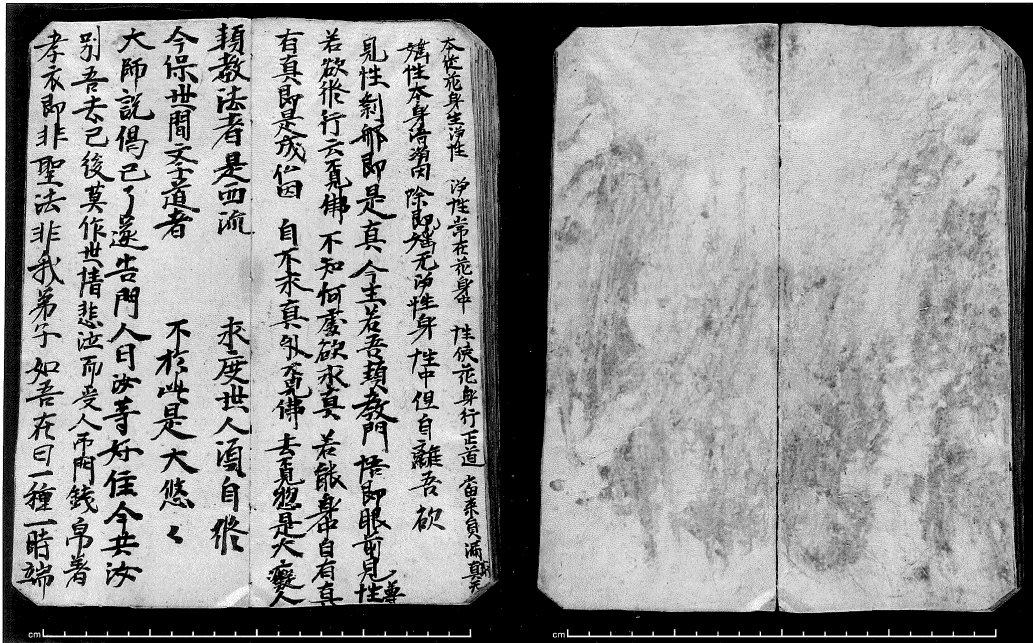 本從花身生淨性　淨性常在花身中　性使花身行正道　當來員滿真无窮
婬性本身清淨因　除即婬无淨性身　性中但自離吾欲
見性剎那即是真　今生若吾頓教門　悟即眼前見性尊
若欲修行云覓佛　不知何處欲求真　若能身中自有真
有真即是成佛因　自不求真外覓佛　去覓惣是大癡人
頓教法者是西流　求度世人須自修
今保世間學道者　不於此是大悠々
大師說偈已了遂告門人曰汝等好住今共汝
別吾去已後莫作世情悲泣而受人弔問錢帛著
孝衣即非聖法非我弟子如吾在日一種一時端
cm
cm